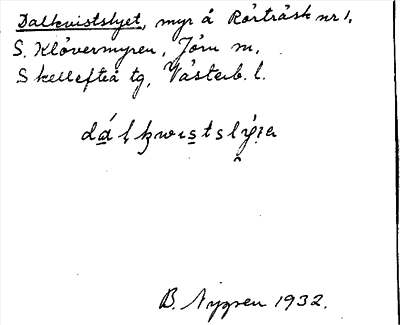 Dalkvistslyet, myr å Rörträsk nr 1,
S. Klövermyren, Jörn sn,
Skellefteå tg, Västerb. l.
B. Nygren 1932.